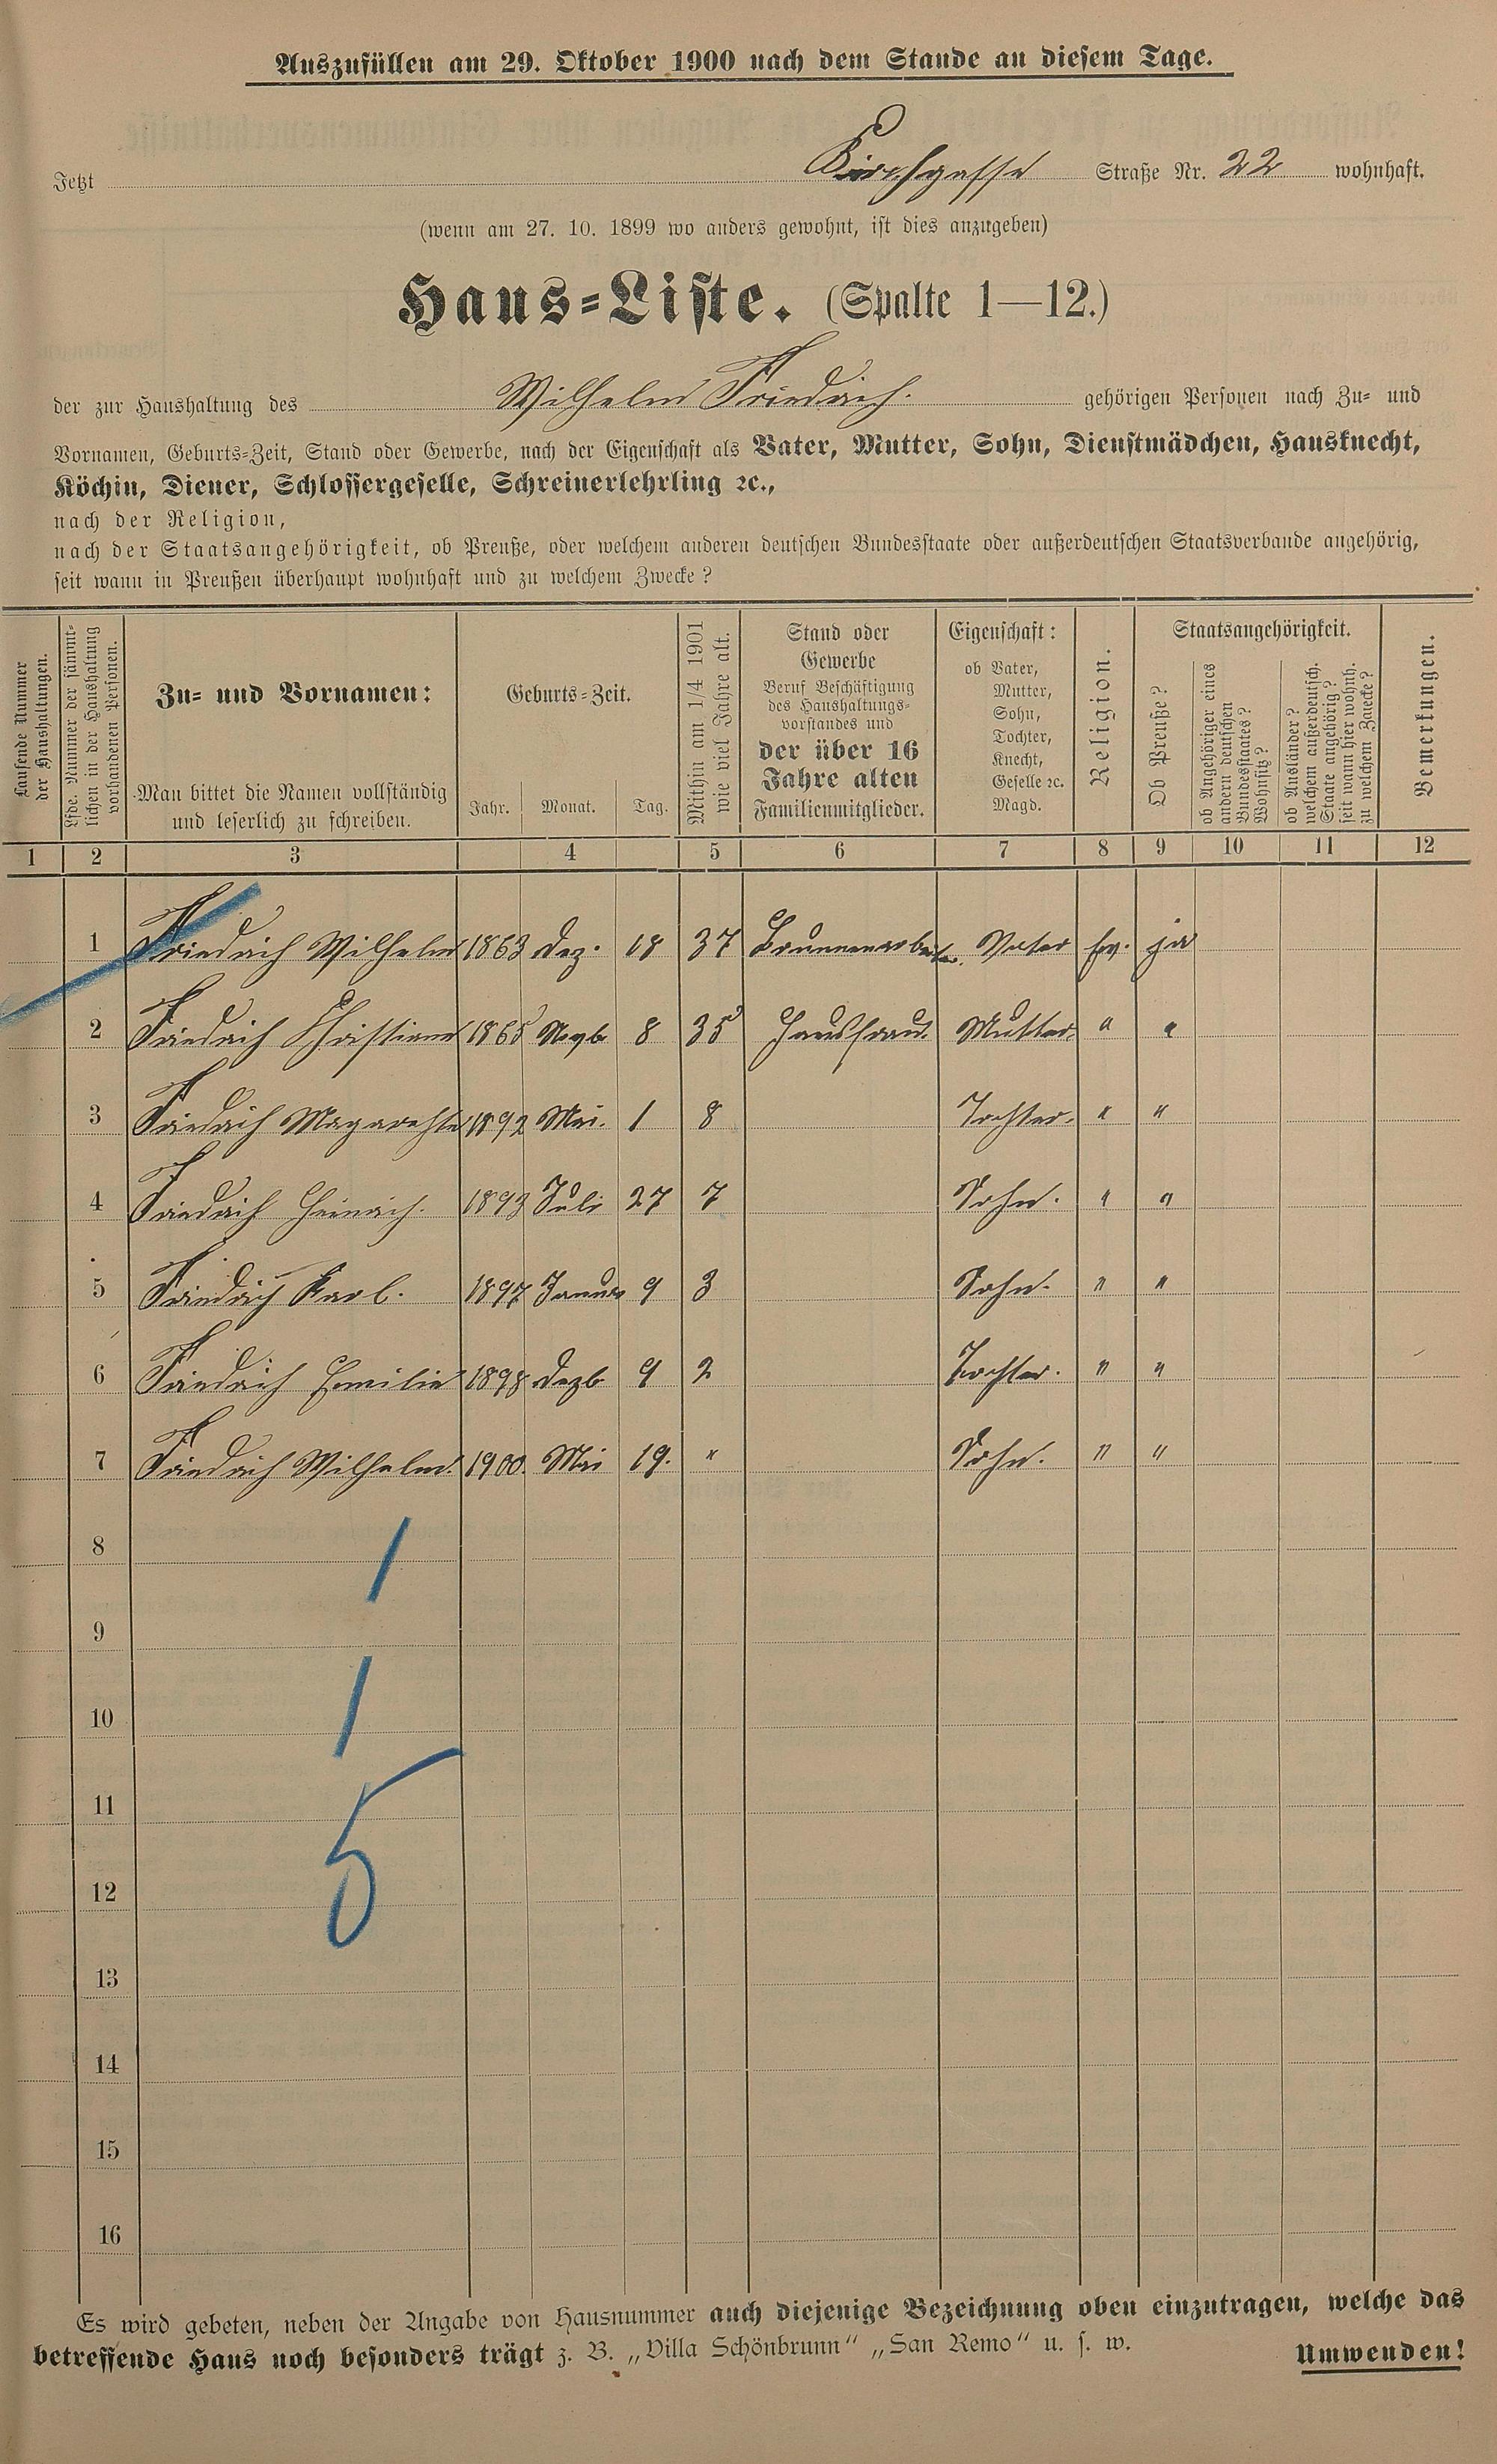 Auszufüllen am 29. Oktober 1900 nach dem Stande an diesem Tage.
Jetzt Kirchgasse Straße Nr. 22 wohnhaft.
(wenn am 27. 10. 1899 wo anders gewohnt, ist dies anzugeben)
Haus-Liste. (Spalte 1—12.)
der zur Haushaltung des Wilhelm Friedrich. gehörigen Personen nach Zu- und
Vornamen, Geburts-Zeit, Stand oder Gewerbe, nach der Eigenschaft als Vater, Mutter, Sohn, Dienstmädchen, Hausknecht,
Köchin, Diener, Schlossergeselle, Schreinerlehrling ꝛc.,
nach der Religion,
nach der Staatsangehörigkeit, ob Preuße, oder welchem anderen deutschen Bundesstaate oder außerdeutschen Staatsverbande angehörig,
seit wann in Preußen überhaupt wohnhaft und zu welchem Zwecke?
Laufende Nummer
der Haushaltungen.
Lfde. Nummer der sämmt-
lichen in der Haushaltung
vorhandenen Personen.
Zu- und Vornamen:
Man bittet die Namen vollständig
und leserlich zu schreiben.
Geburts-Zeit.
Jahr. Monat. Tag.
Mithin am 1/4 1901
wie viel Jahre alt.
Stand oder
Gewerbe
Beruf Beschäftigung
des Haushaltungs-
vorstandes und
der über 16
Jahre alten
Familienmitglieder.
Eigenschaft:
ob Vater,
Mutter,
Sohn,
Tochter,
Knecht,
Geselle ꝛc.
Magd.
Religion.
Staatsangehörigkeit.
Ob Preuße?
ob Angehöriger eines
andern deutschen
Bundesstaates?
Wohnsitz?
ob Ausländer?
welchem außerdeutsch.
Staate angehörig?
seit wann hier wohnh.
zu welchem Zwecke?
Bemerkungen.
1 2 3 4 5 6 7 8 9 10 11 12
1 Friedrich Wilhelm 1863 Dez. 18 37 Brunnenarbeiter. Vater ev. ja
2 Friedrich Christiane 1865 Novb 8 35 Hausfrau. Mutter " "
3 Friedrich Magarethe 1892 Mai. 1 8 Tochter. " "
4 Friedrich Heinrich. 1893 Juli 27 7 Sohn. " "
5 Friedrich Karl. 1897 Januar 9 3 Sohn. " "
6 Friedrich Emilie 1898 Dezb 9 2 Tochter. " "
7 Friedrich Wilhelm. 1900. Mai 19. " Sohn. " "
8 1
9
10 1
11
12 5
13
14
15
16
Es wird gebeten, neben der Angabe von Hausnummer auch diejenige Bezeichnung oben einzutragen, welche das
betreffende Haus noch besonders trägt z. B. „Villa Schönbrunn“ „San Remo“ u. s. w. Umwenden!